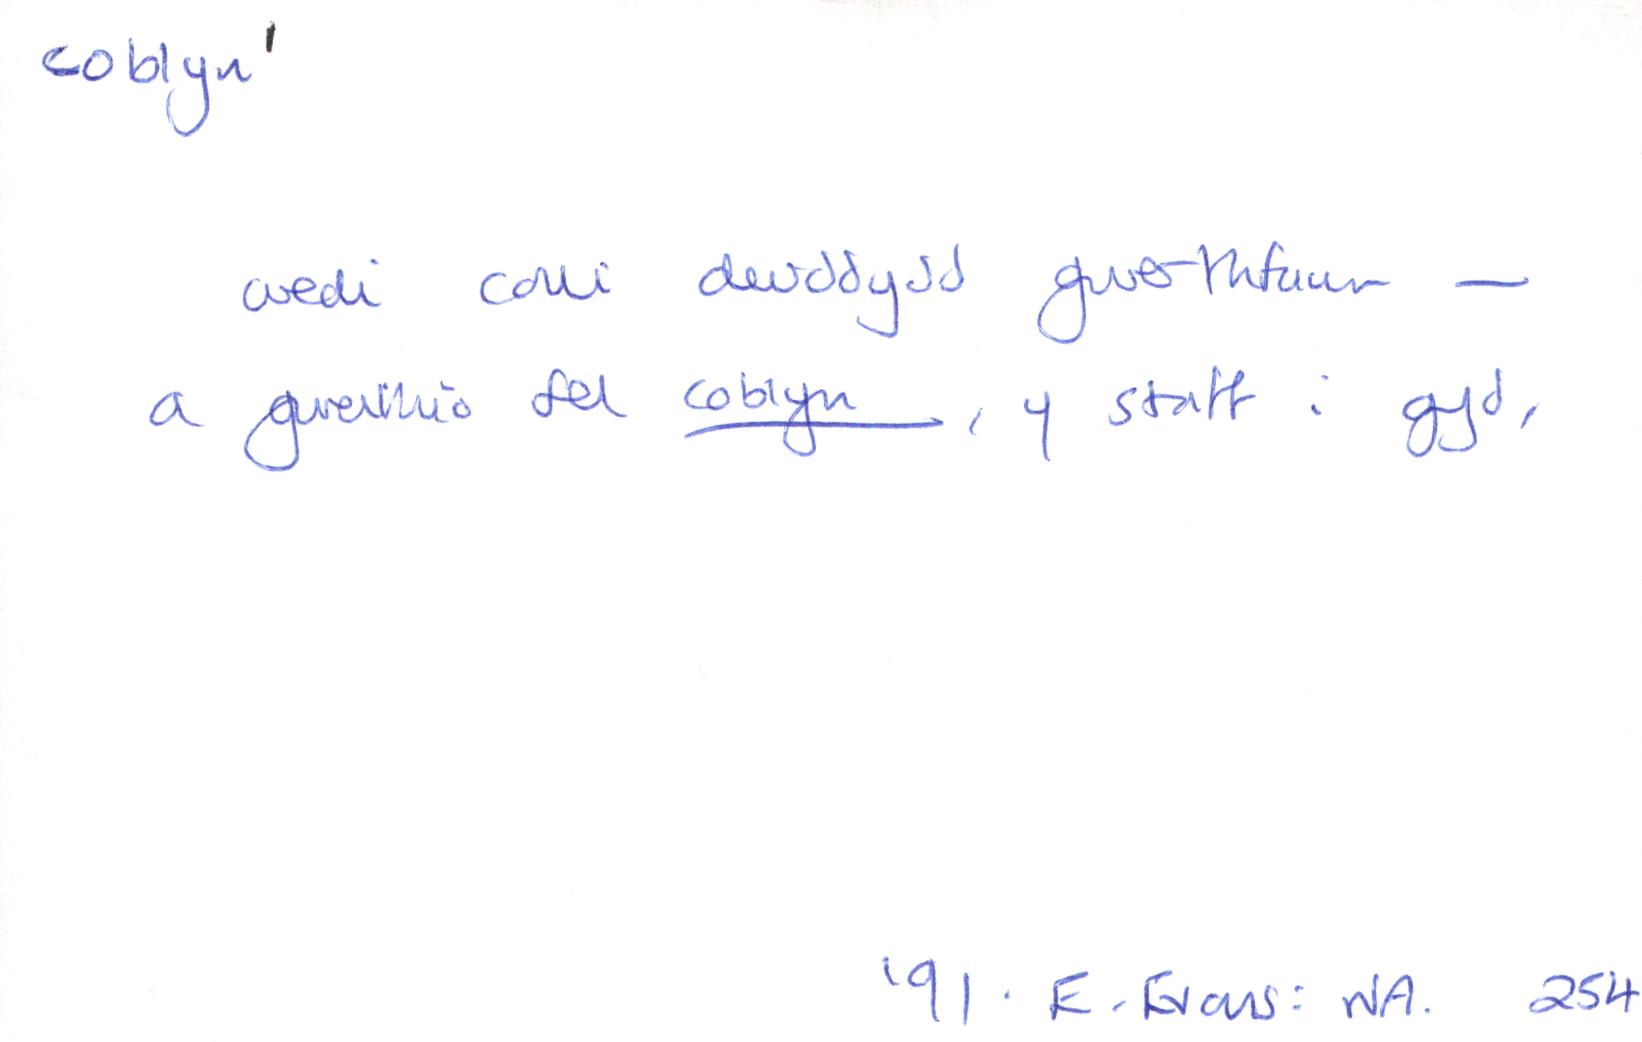 coblyn'
wedi colli deuddydd gwerthfawr —
a gweithio fel coblyn, y staff i gyd,
'91. E. Evans: NA. 254